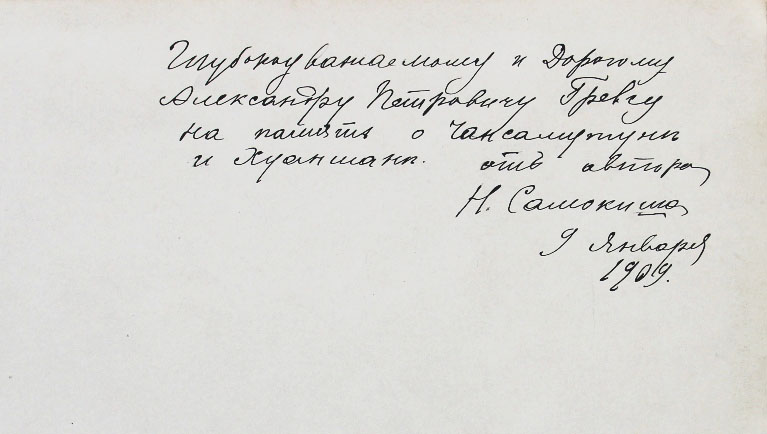 Глубокоуважаемому и Дорогому
Александру Петровичу Гревсу
на память о Чансамутунь
и Хуаншань. отъ автора
Н. Самокиша
9 Января
1909.